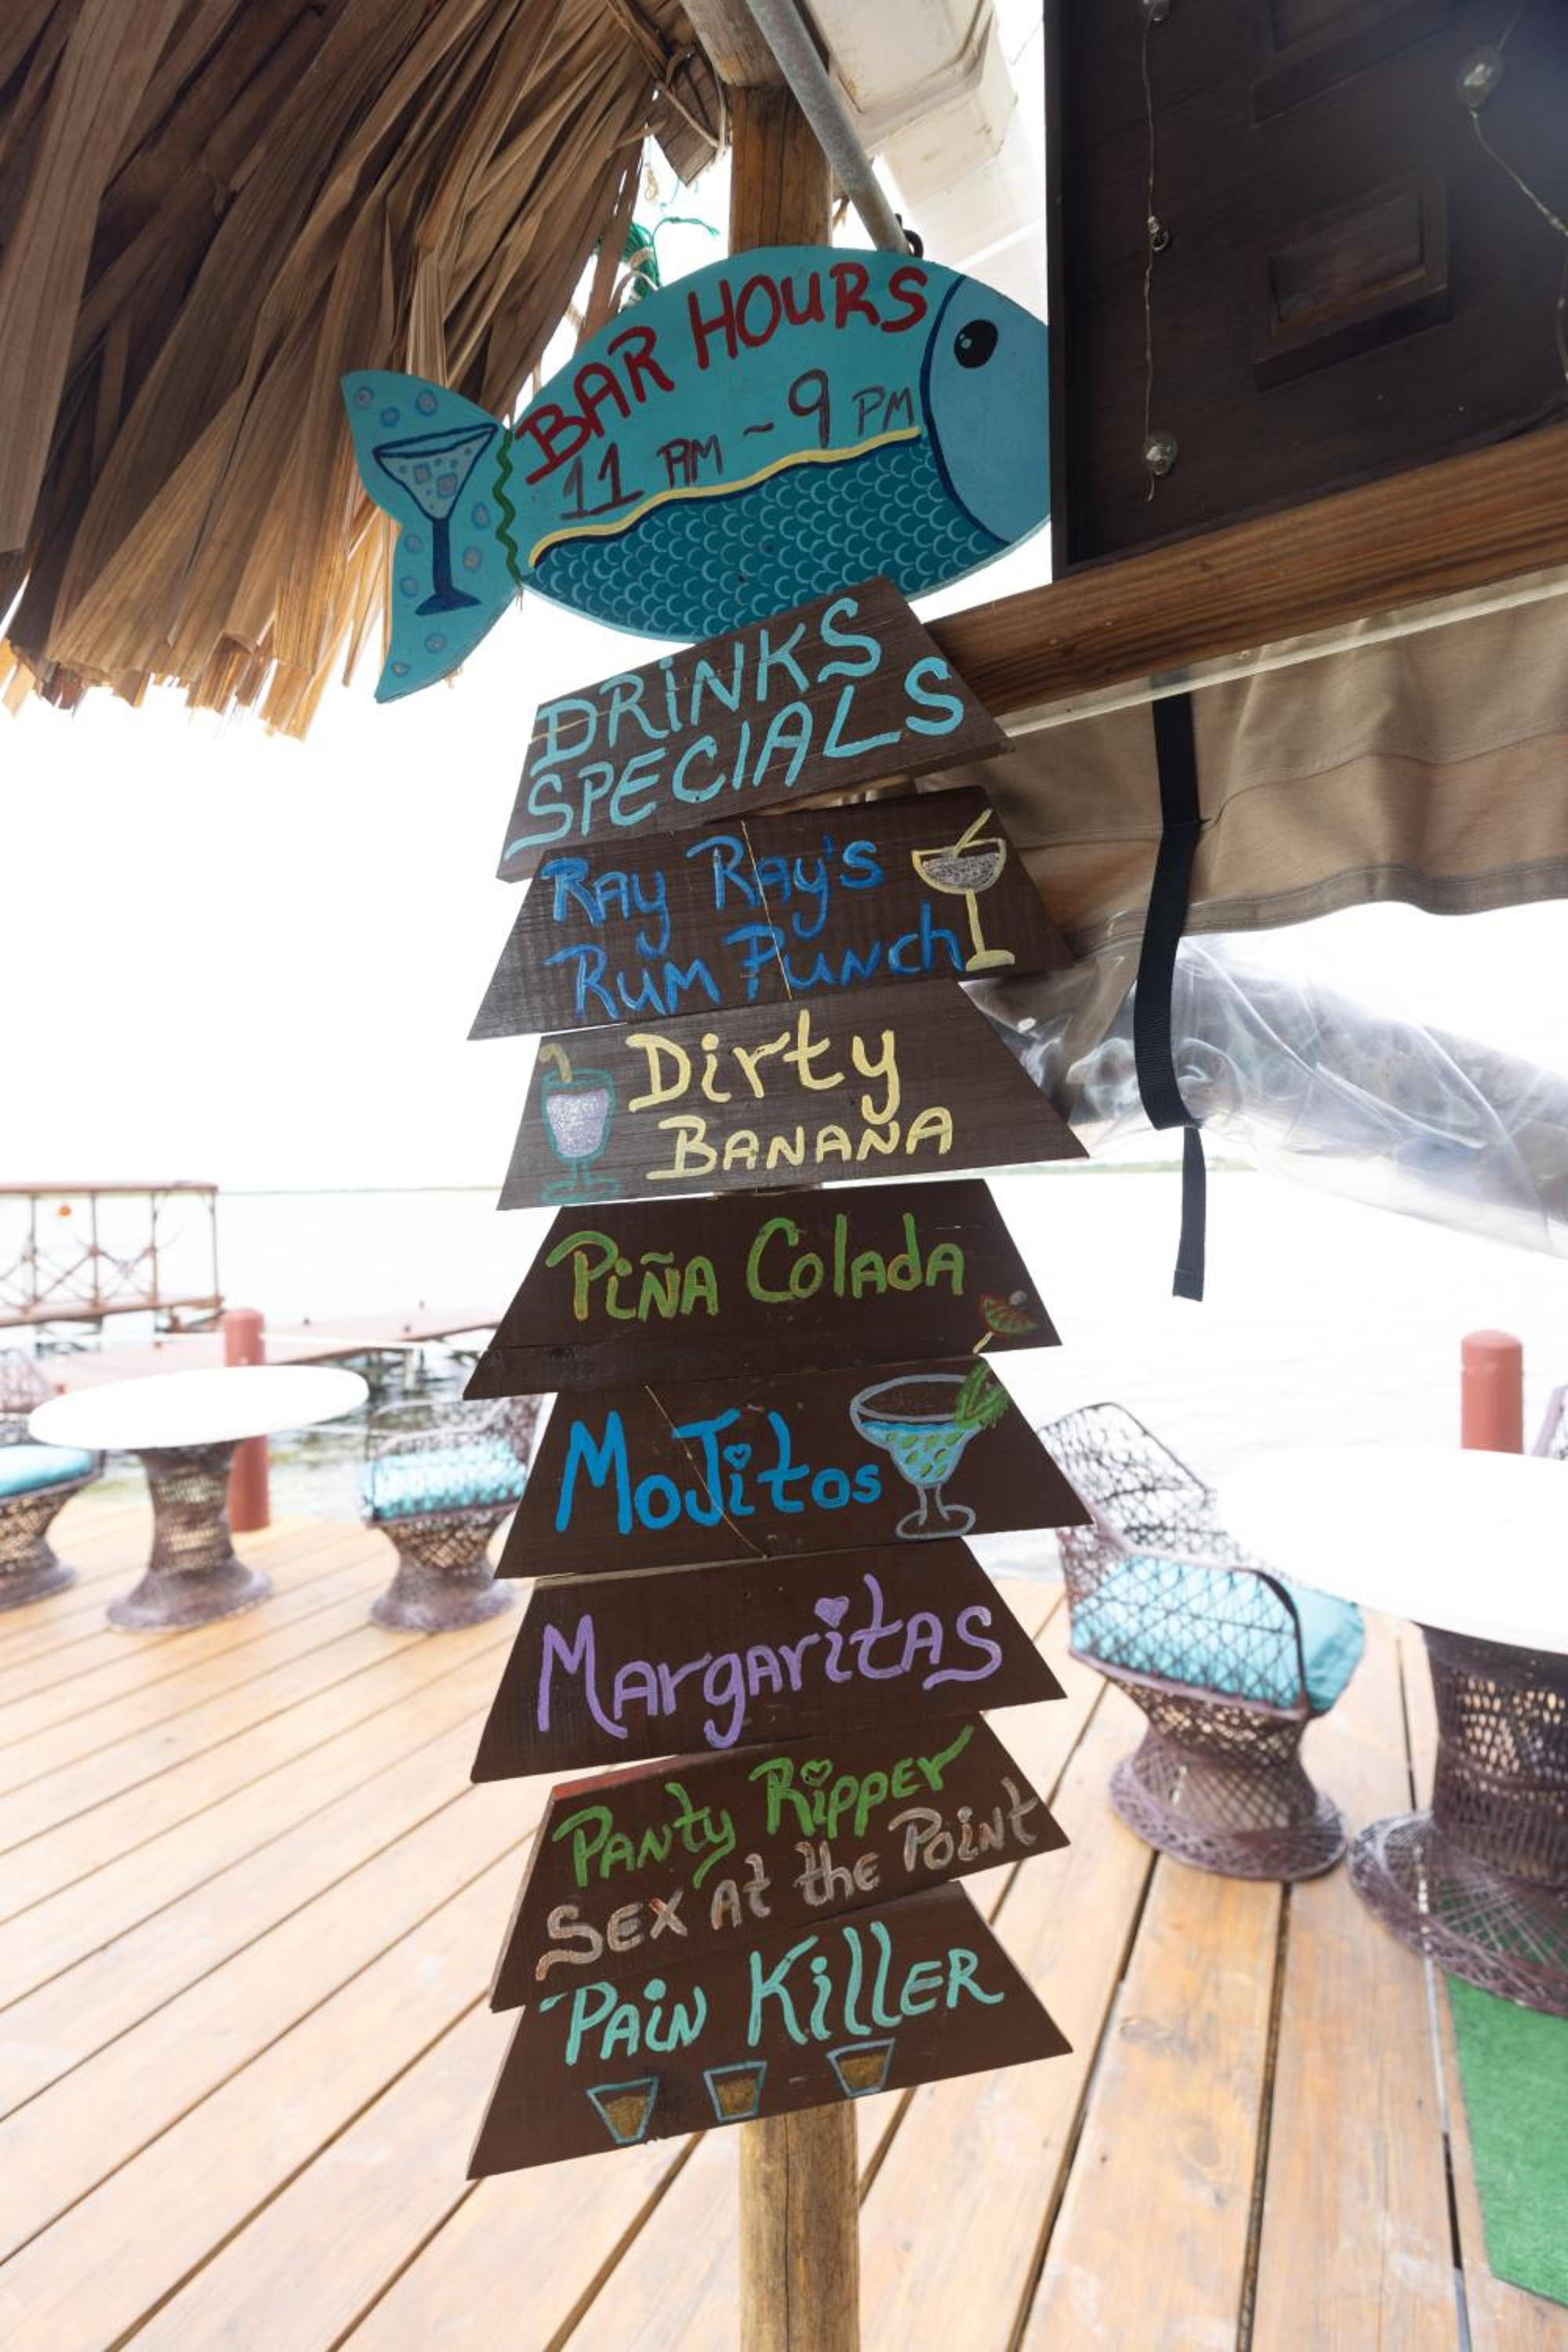 BAR HOURS
11 AM ~ 9 PM
DRINKS
SPECIALS
RAY RAY'S
RUM PUNch
Dirty
BANANA
PiÑA ColAdA
MoJitos
MArgAritAS
PANty RippEr
SEX At thE PoiNt
PAiN KillER